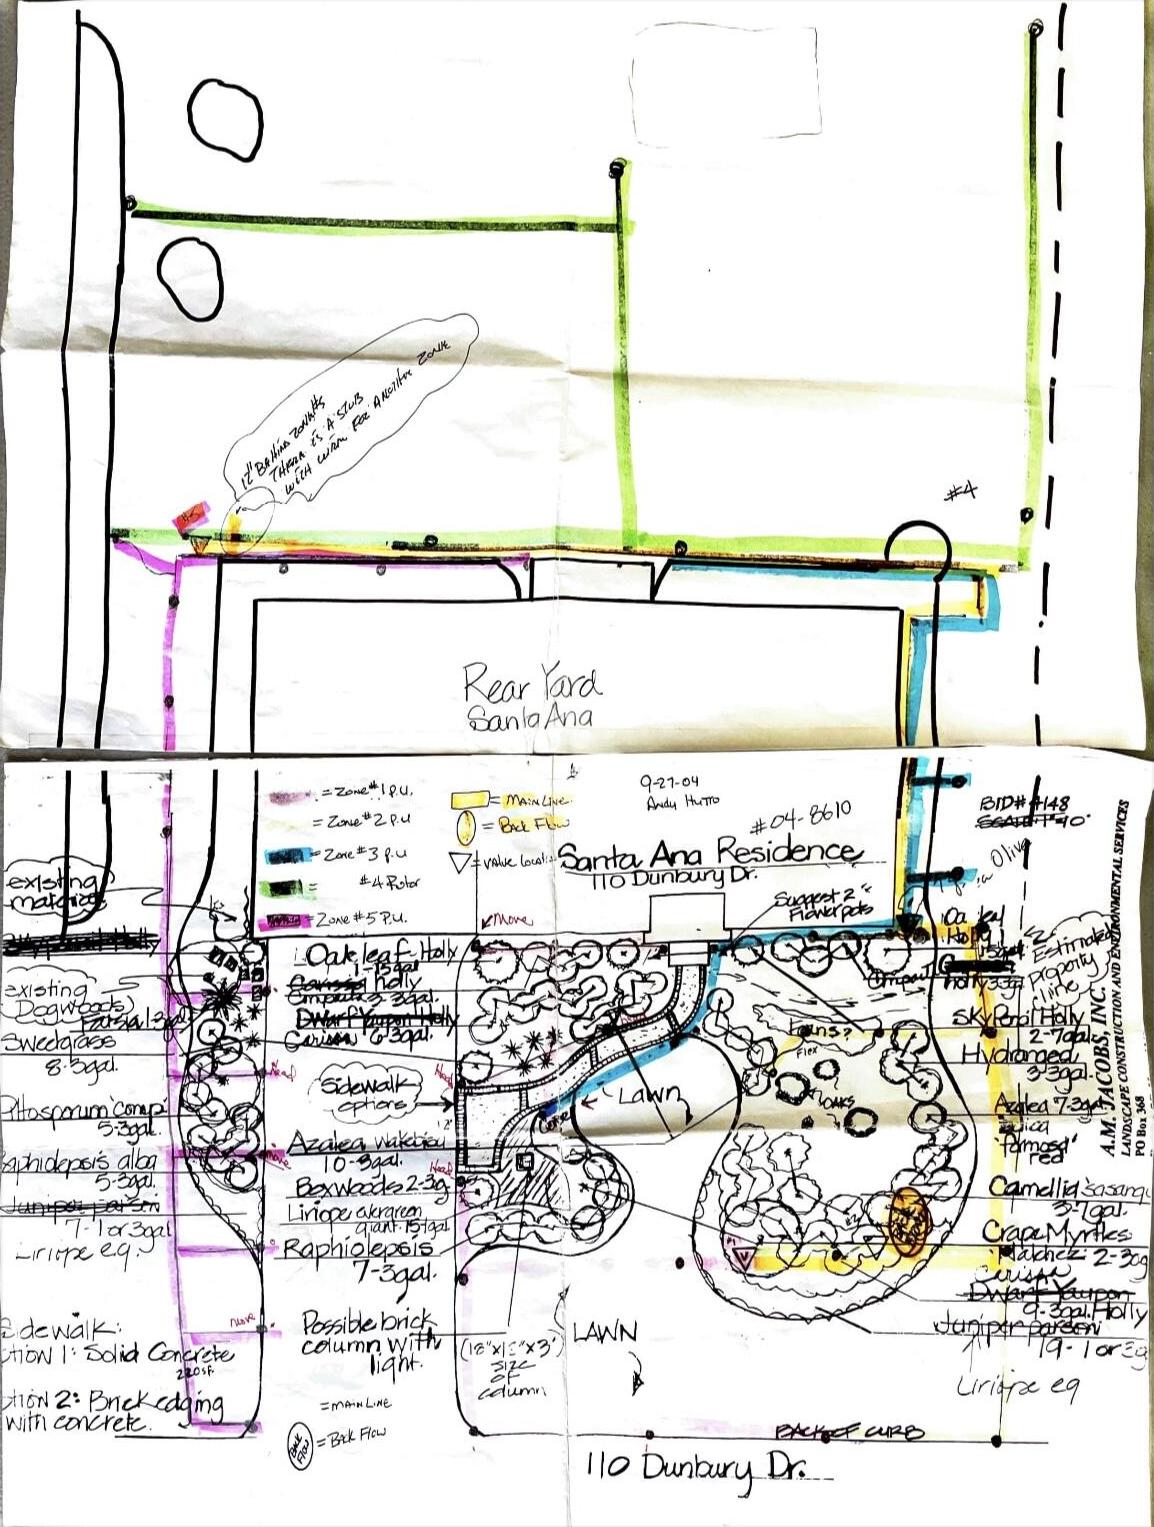 12" BEHIND ZONE #5
THERE IS A STUB
WITH WIRE FOR ANOTHER ZONE
#5
#4
Rear Yard
Santa Ana
= Zone #1 P.U.
= Zone #2 P.U
= Zone #3 P.U
= #4 Rotor
= Zone #5 P.U.
= MAIN LINE
= Back Flow
= Valve Locati
9-27-04
Andy Hutto
#04-8610
Santa Ana Residence
110 Dunbury Dr.
BID# 4148
SCALE: 1"=10'
Olive
A.M. JACOBS, INC.
LANDSCAPE CONSTRUCTION AND ENVIRONMENTAL SERVICES
PO Box 368
Suggest 2
Flowerpots
Estimated
Property
line
existing
material
existing
Dogwoods
Sweetgrass
8-3gal.
Pittosporum 'comp'
5-3gal.
aphiolepsis alba
5-3gal.
Juniper parsoni
7-1 or 3gal
Liriope eg.
Move
Oakleaf Holly
1-15gal
Carissa Holly
Compacta 3-3gal.
Dwarf Yaupon Holly
Carissa 6-3gal.
Sidewalk
options
12'
Head
Head
Move
Head
Azalea
10-3gal.
Boxwoods 2-3g
Liriope evergreen
giant-15-1gal
Raphiolepsis
7-3gal.
Possible brick
column with
light.
(18"x18"x3')
size
of
column
Lawn
Ferns?
Flex
OAKS
Oakleaf
Holly
Holly 3-3gal
Sky Pencil Holly
2-7gal.
Hydrangea
3-3gal.
Azalea 7-3gal
indica
'Formosa'
red
Camellia sasanq
3-7gal.
Crape Myrtles
Natchez 2-30g
Carissa
Dwarf Yaupon
9-3gal. Holly
Juniper parsoni
19-1 or 3g
Liriope eg
Back
Flow
V
#1
#2
Move
Sidewalk:
tion 1: Solid Concrete
220 SF.
tion 2: Brick edging
with concrete.
= MAIN LINE
BACK
FLOW
= Back Flow
LAWN
BACK OF CURB
110 Dunbury Dr.